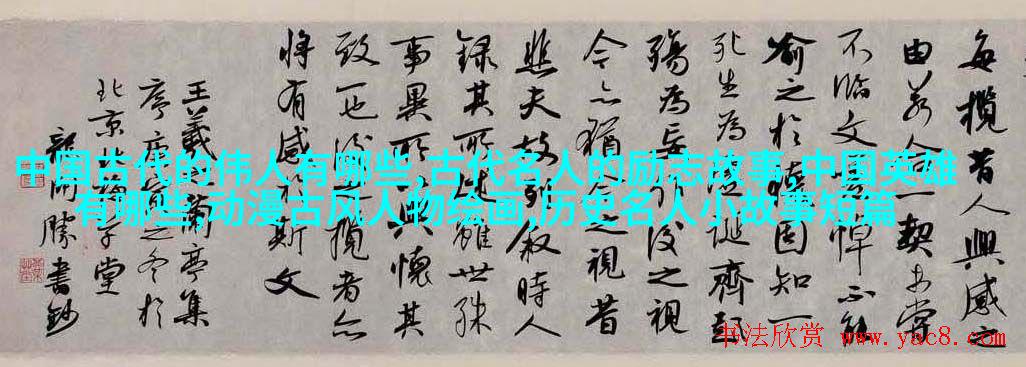 每攬昔人興感之
由若合一契未嘗
不臨文嗟悼不能
喻之於懷固知一
死生為虛誕齊彭
殤為妄作後之視
今亦猶今之視昔
悲夫故列敘時人
錄其所述雖世殊
事異所以興懷其
致一也後之攬者亦
將有感於斯文
王羲之蘭亭集
序庚寅之冬於
北京堂
勝書鈔
中国古代的伟人有哪些,古代名人的励志故事,中国英雄
有哪些,动漫古风人物绘画,历史名人小故事短篇
书法欣赏 www.yac8.com